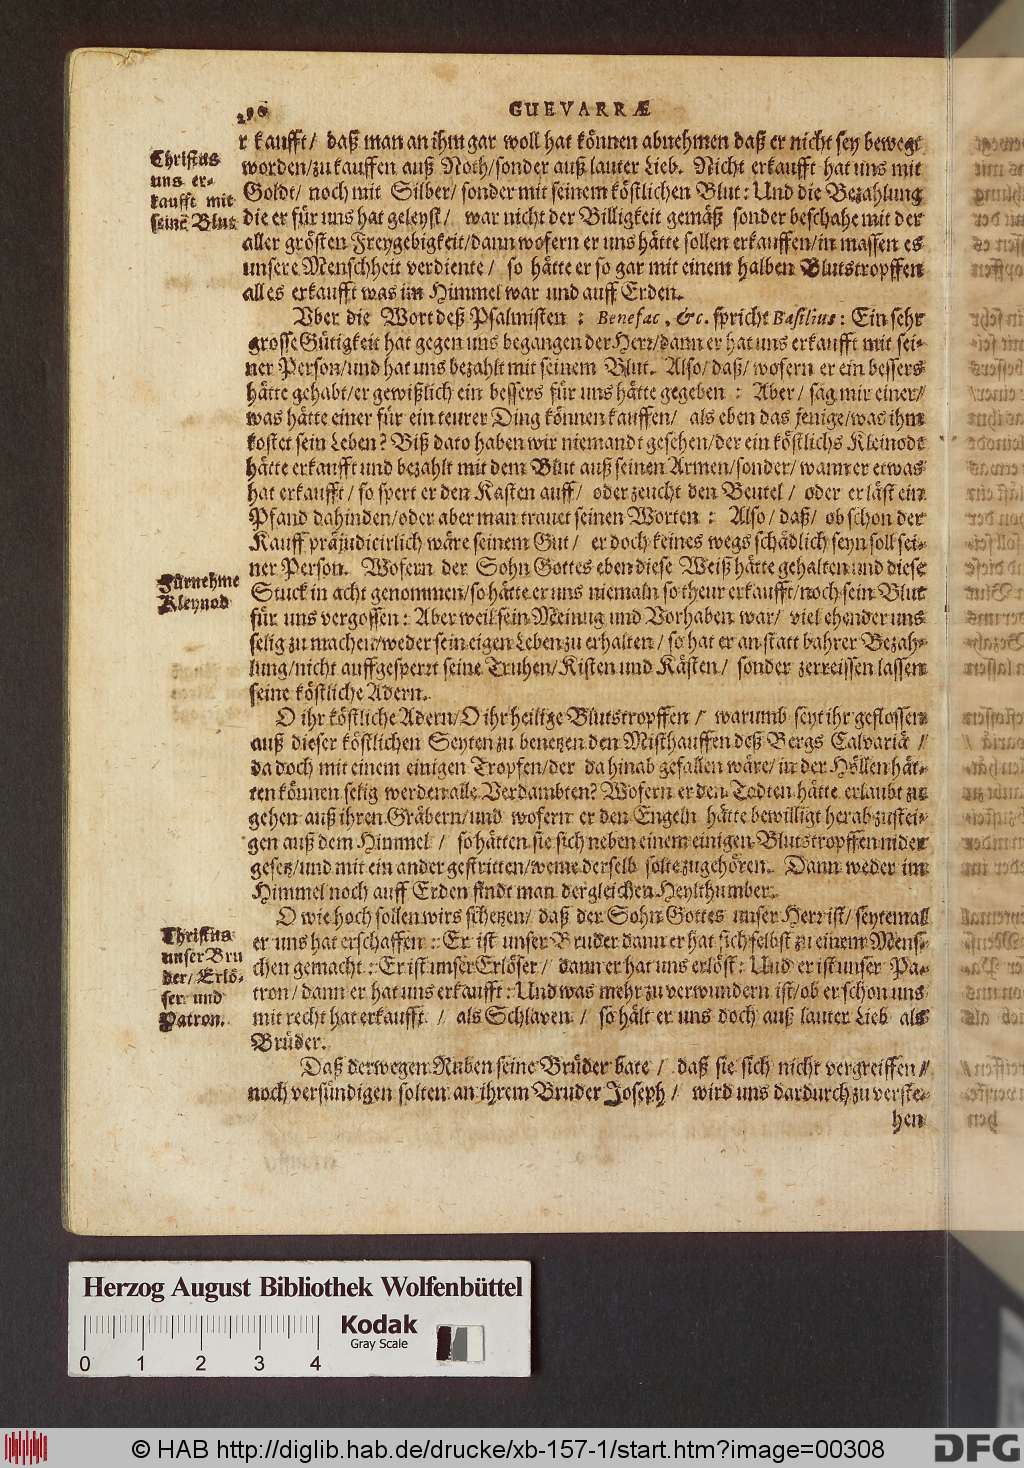 290
GUEVARRÆ
r kaufft/ daß man an ihm gar woll hat können abnehmen daß er nicht sey bewegt
Christus
uns er-
kaufft mit
seinē Blut
worden/zu kauffen auß Noth/sonder auß lauter Lieb. Nicht erkaufft hat uns mit
Goldt/ noch mit Silber/ sonder mit seinem köstlichen Blut: Und die Bezahlung
die er für uns hat geleyst/ war nicht der Billigkeit gemäß sonder beschahe mit der
aller grösten Freygebigkeit/dann wofern er uns hätte sollen erkauffen/in massen es
unsere Menschheit verdiente/ so hätte er so gar mit einem halben Blutstropffen
alles erkaufft was im Himmel war und auff Erden.
Vber die Wort deß Psalmisten : Benefac, &c. spricht Basilius: Ein sehr
grosse Gütigkeit hat gegen uns begangen der Herr/dann er hat uns erkaufft mit sei-
ner Person/und hat uns bezahlt mit seinem Blut. Also/daß/wofern er ein bessers
hätte gehabt/er gewißlich ein bessers für uns hätte gegeben : Aber/ sag mir einer/
was hätte einer für ein teurer Ding können kauffen/ als eben das jenige/was ihm
kostet sein Leben? Biß dato haben wir niemandt gesehen/der ein köstlichs Kleinodt
hätte erkaufft und bezahlt mit dem Blut auß seinen Armen/sonder/wann er etwas
hat erkaufft/ so spert er den Kasten auff/ oder zeucht den Beutel/ oder er läst ein
Pfand dahinden/oder aber man trauet seinen Worten : Also/daß/ ob schon der
Kauff präjudicirlich wäre seinem Gut/ er doch keines wegs schädlich seyn soll sei-
Fürnehme
Kleynod
ner Person. Wofern der Sohn Gottes eben diese Weiß hätte gehalten und diese
Stuck in acht genommen/so hätte er uns niemaln so theur erkaufft/noch sein Blut
für uns vergossen : Aber weil sein Meinug und Vorhaben war/ viel ehender uns
selig zu machen/weder sein eigen Leben zu erhalten/ so hat er an statt bahrer Bezah-
lung/nicht auffgesperrt seine Truhen/Kisten und Kästen/ sonder zerreissen lassen
seine köstliche Adern.
O ihr köstliche Adern/O ihr heilige Blutstropffen/ warumb seyt ihr geflossen
auß dieser köstlichen Seyten zu benetzen den Misthauffen deß Bergs Calvariä/
da doch mit einem einigen Tropfen/der da hinab gefallen wäre/in der Höllen hät-
ten können selig werden alle Verdambten? Wofern er den Todten hätte erlaubt zu
gehen auß ihren Gräbern/und wofern er den Engeln hätte bewilligt herab zustei-
gen auß dem Himmel/ so hätten sie sich neben einem einigen Blutstropffen nider
gesetz/und mit ein ander gestritten/weme derselb solte zugehören. Dann weder im
Himmel noch auff Erden findt man dergleichen Heylthumber.
O wie hoch sollen wirs schetzen/ daß der Sohn Gottes unser Herr ist/seytemall
Christus
unser Bru
der/Erlö-
ser und
Patron.
er uns hat erschaffen : Er ist unser Bruder dann er hat sich selbst zu einem Mens-
chen gemacht : Er ist unser Erlöser/ dann er hat uns erlöst: Und er ist unser Pa-
tron/dann er hat uns erkaufft: Und was mehr zu verwundern ist/ob er schon uns
mit recht hat erkaufft/ als Schlaven/ so hält er uns doch auß lauter Lieb als
Brüder.
Daß derwegen Ruben seine Brüder bate/ daß sie sich nicht vergreiffen/
noch versündigen solten an ihrem Bruder Joseph/ wird uns dardurch zu verste-
hen
Herzog August Bibliothek Wolfenbüttel
Kodak
Gray Scale
0 1 2 3 4
© HAB http://diglib.hab.de/drucke/xb-157-1/start.htm?image=00308
DFG